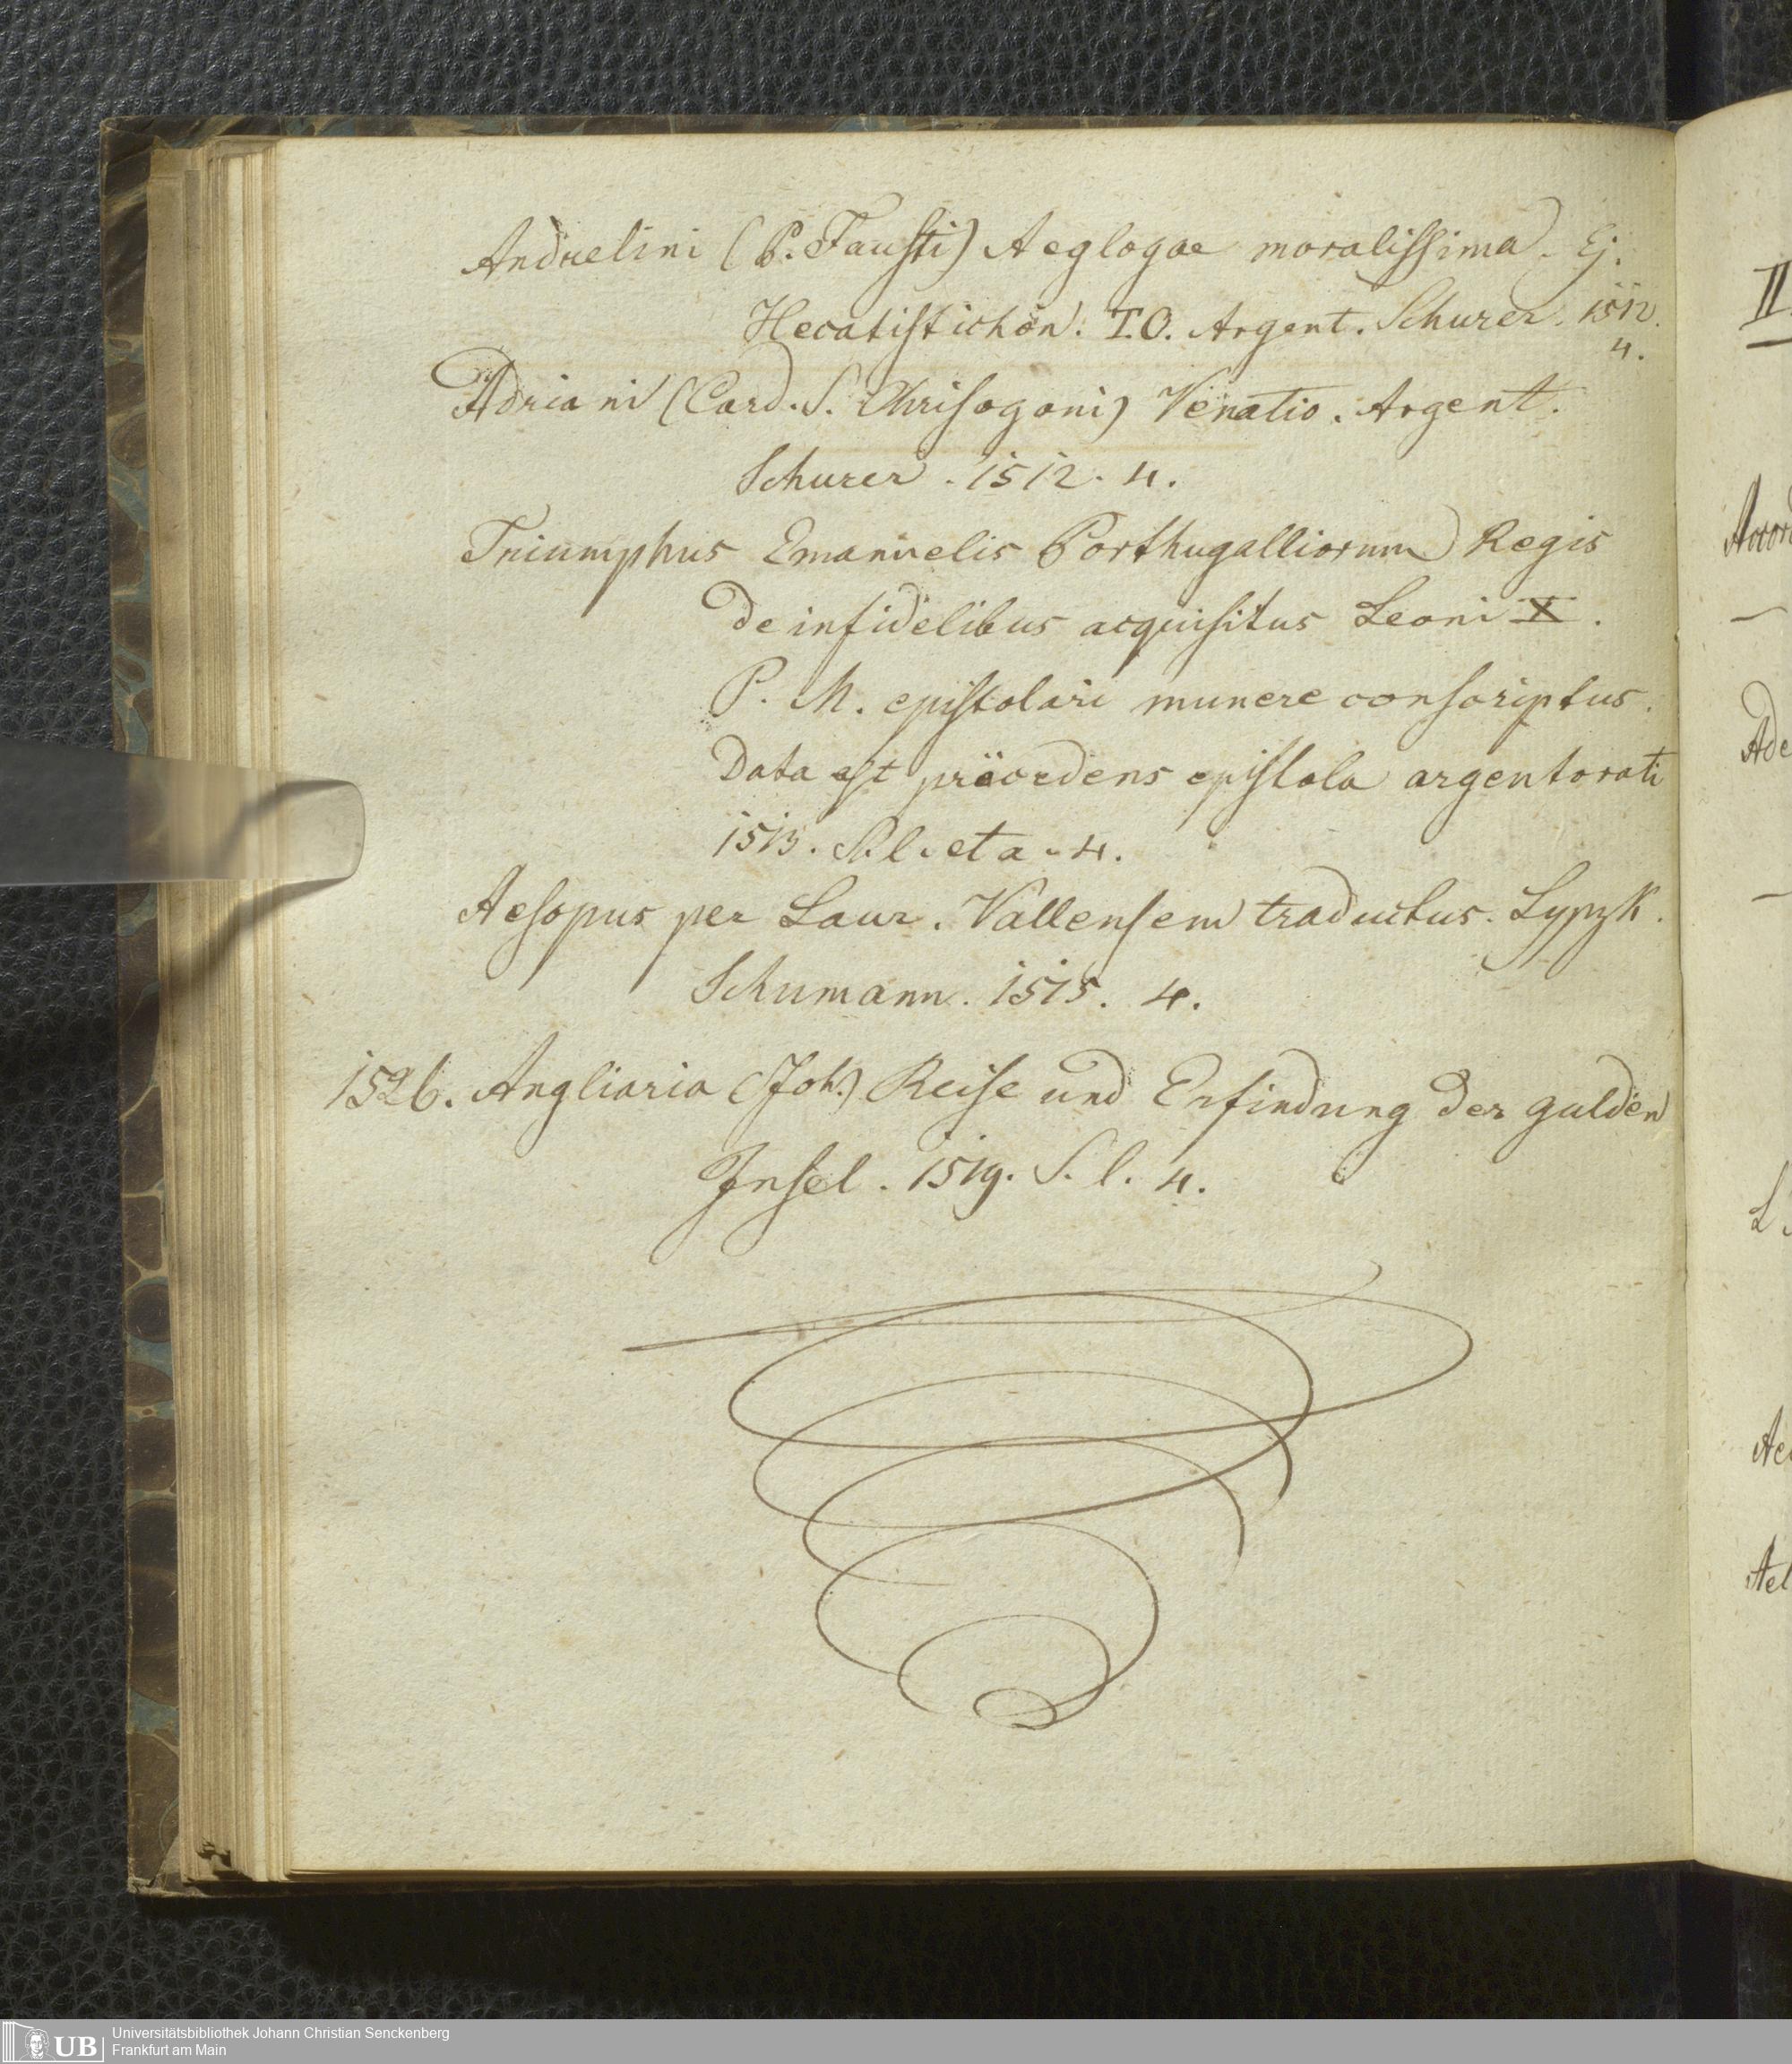 Andrelini (P. Fausti) Aeglogae moralissima. Ej.
Hecatistichon. T.O. Argent. Schurer. 1512.
4.
Adriani (Card. S. Chrisogoni) Venatio. Argent.
Schurer. 1512. 4.
Triumphus Emanuelis Porthugalliorum Regis
de infidelibus acquisitus Leoni X.
P. M. epistolari munere conscriptus.
Data est präcedens epistola argentorati
1513. S. l. et a. 4.
Aesopus per Laur. Vallensem traductus. Lypzk.
Schumann. 1515. 4.
1526. Angliaria (Joh.) Reise und Erfindung der gulden
Insel. 1519. S. l. 4.
II
Ade
L
UB
Universitätsbibliothek Johann Christian Senckenberg
Frankfurt am Main